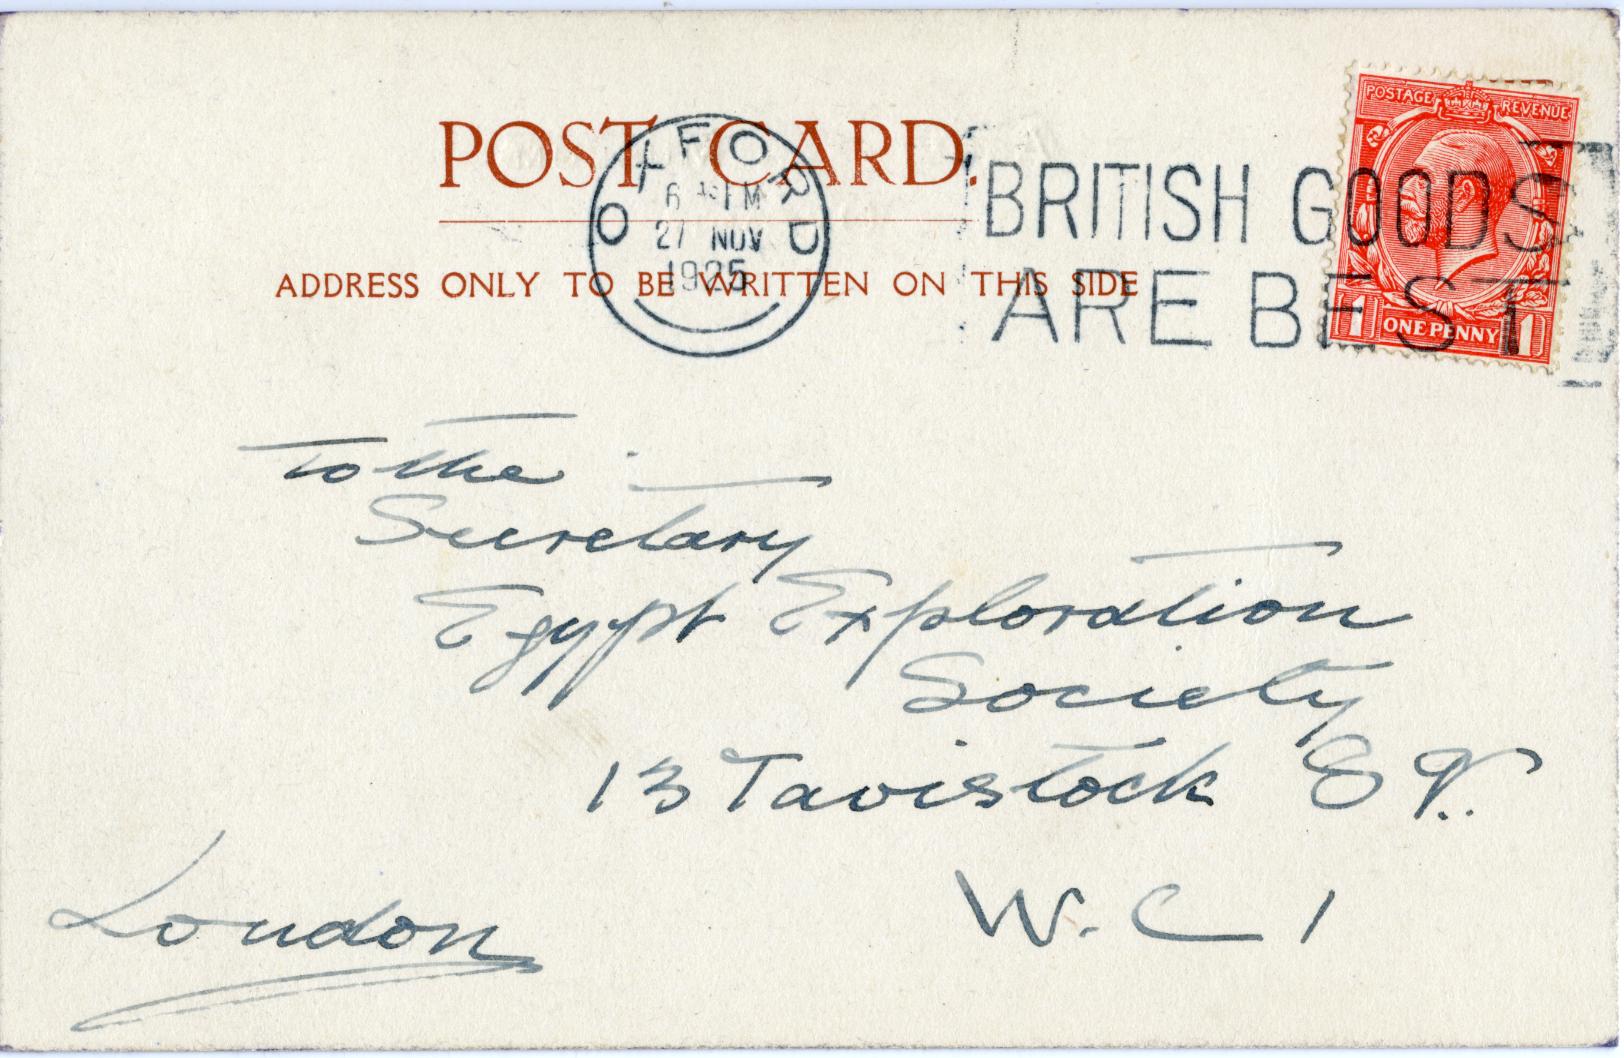 POST CARD.
ADDRESS ONLY TO BE WRITTEN ON THIS SIDE
OXFORD
27 NOV
1925
BRITISH GOODS
ARE BEST
POSTAGE REVENUE
1 ONE PENNY 1
To the
Secretary
Egypt Exploration
Society
13 Tavistock Sq.
W.C 1
London